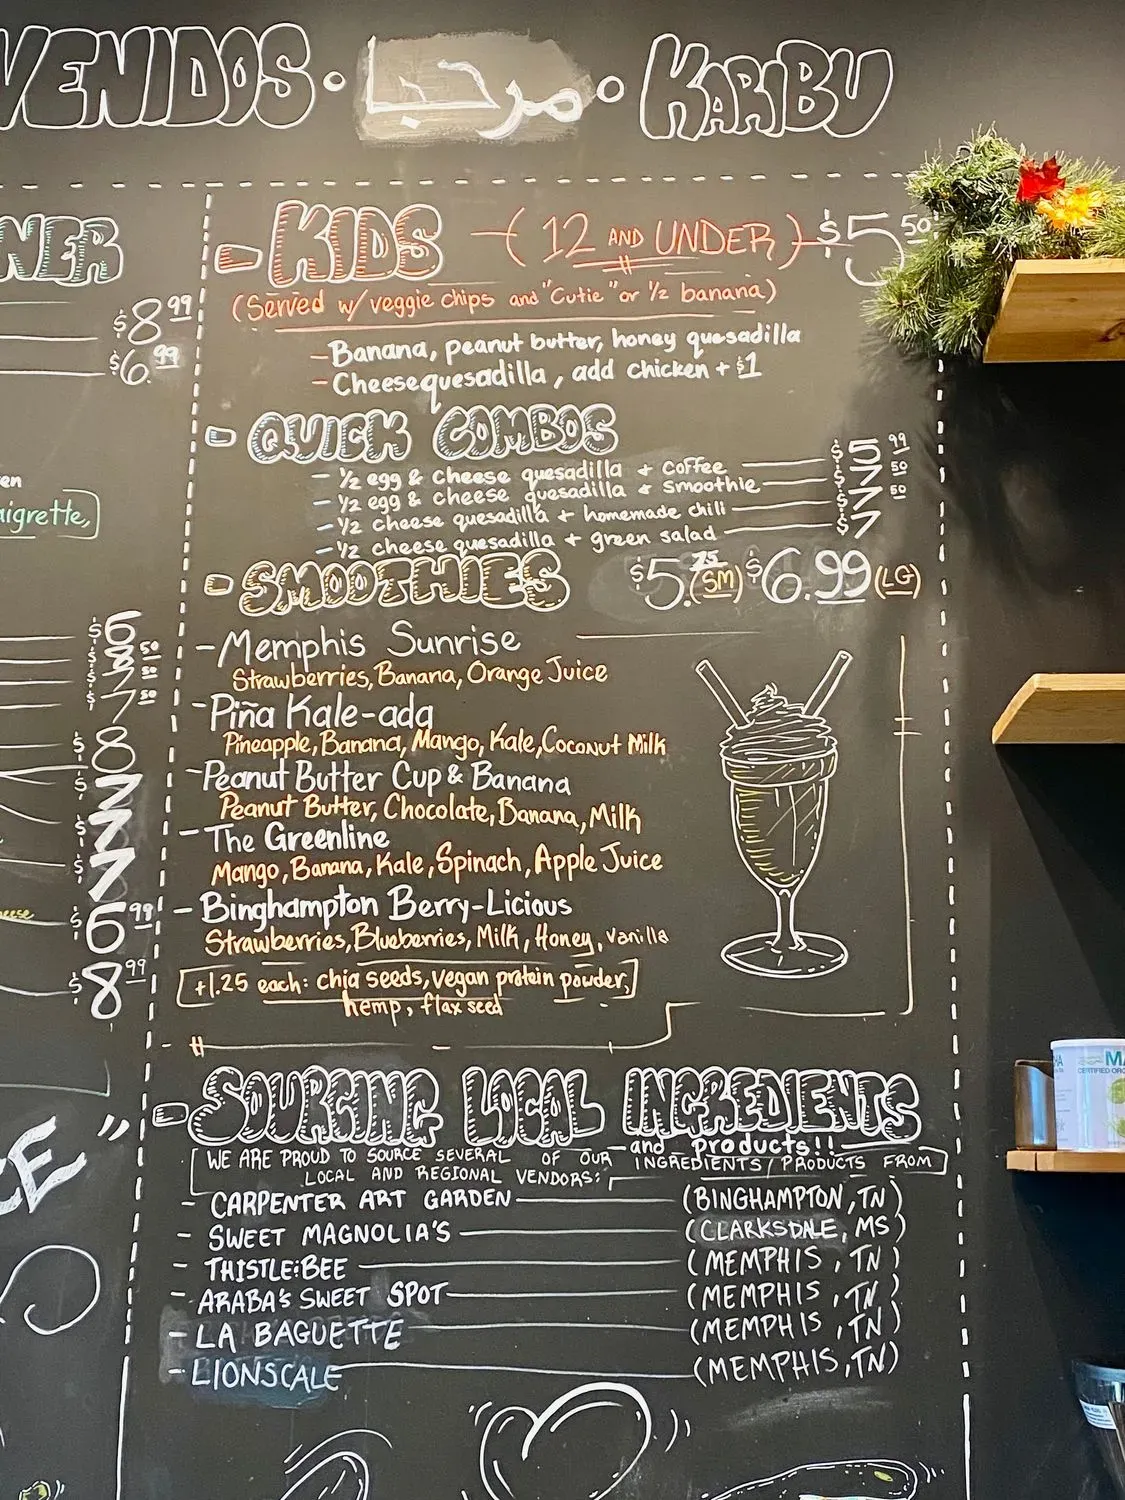 VENIDOS • مرحبا • KARIBU
NER
$8.99
$6.99
en
aigrette,
$6
$8.50
$7.50
$7.50
$8
$7
$7
$7
cheese
$6.99
$8.99
CE"
KIDS (12 AND UNDER) $5.50
(Served w/ veggie chips and "Cutie" or ½ banana)
- Banana, peanut butter, honey quesadilla
- Cheese quesadilla, add chicken + $1
QUICK COMBOS
- ½ egg & cheese quesadilla + coffee $5.99
- ½ egg & cheese quesadilla & smoothie $7.50
- ½ cheese quesadilla + homemade chili $7.50
- ½ cheese quesadilla + green salad $7
SMOOTHIES $5.75 (SM) $6.99 (LG)
- Memphis Sunrise
Strawberries, Banana, Orange Juice
- Piña Kale-ada
Pineapple, Banana, Mango, Kale, Coconut Milk
- Peanut Butter Cup & Banana
Peanut Butter, Chocolate, Banana, Milk
- The Greenline
Mango, Banana, Kale, Spinach, Apple Juice
- Binghampton Berry-Licious
Strawberries, Blueberries, Milk, Honey, Vanilla
+1.25 each: chia seeds, vegan protein powder,
hemp, flax seed
SOURCING LOCAL INGREDIENTS
and products!!
WE ARE PROUD TO SOURCE SEVERAL OF OUR INGREDIENTS/PRODUCTS FROM
LOCAL AND REGIONAL VENDORS:
- CARPENTER ART GARDEN (BINGHAMPTON, TN)
- SWEET MAGNOLIA'S (CLARKSDALE, MS)
- THISTLE:BEE (MEMPHIS, TN)
- ARABA'S SWEET SPOT (MEMPHIS, TN)
- LA BAGUETTE (MEMPHIS, TN)
- LIONSCALE (MEMPHIS, TN)
MA
CERTIFIED ORG